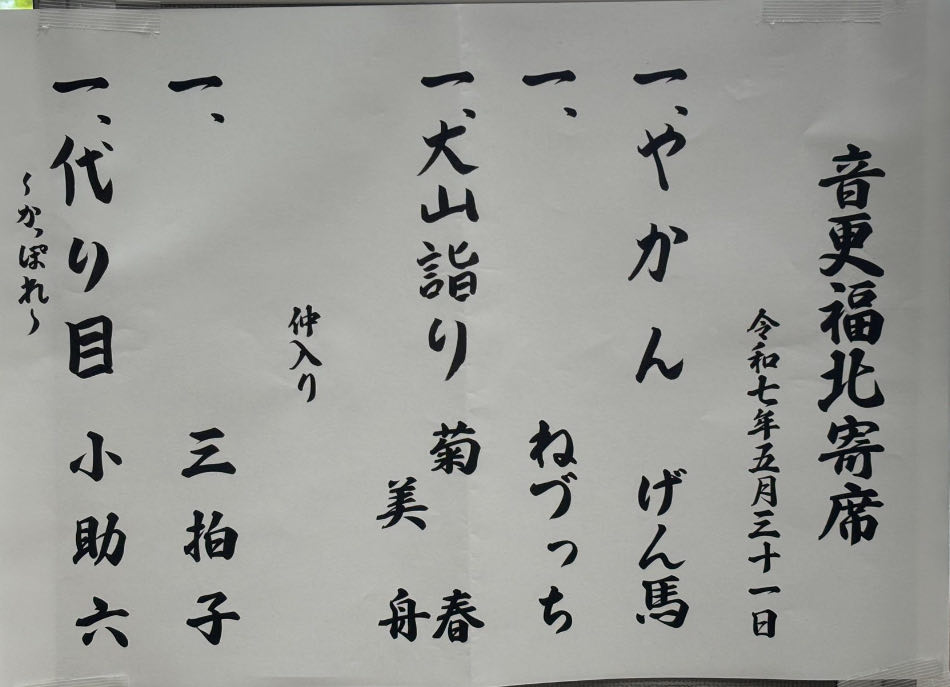 音更福北寄席
令和七年五月三十一日
一、やかん　げん馬
一、　ねづっち
一、大山詣り　菊春
美舟
仲入り
一、　三拍子
一、代り目　小助六
～かっぽれ～